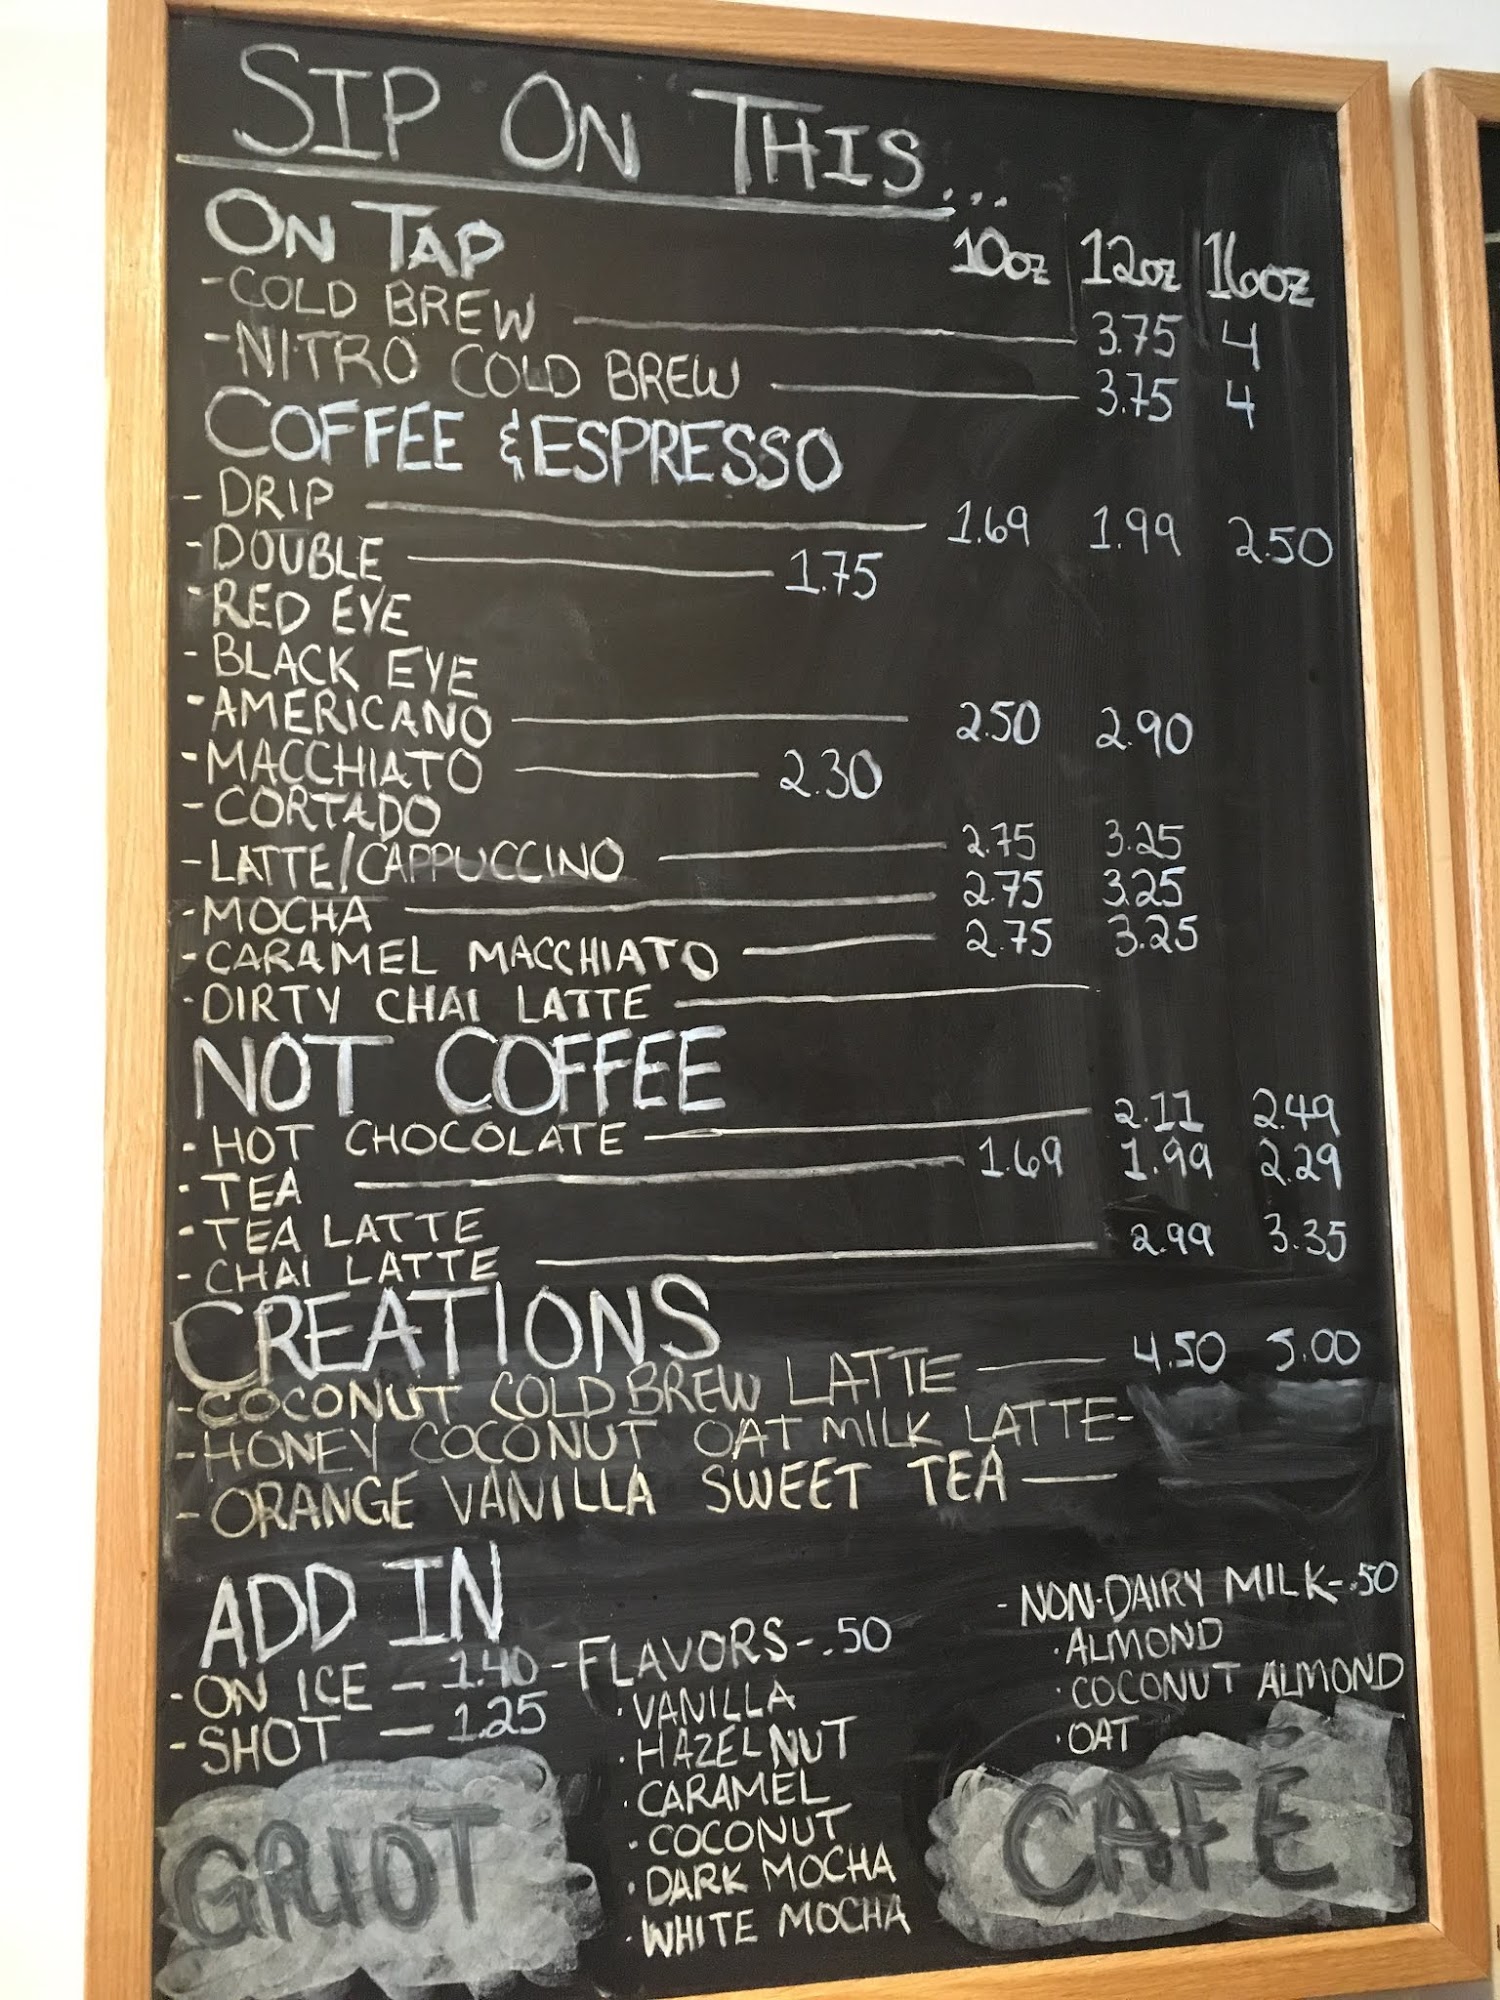 SIP ON THIS...
ON TAP 10oz 12oz 16oz
- COLD BREW 3.75 4
- NITRO COLD BREW 3.75 4
COFFEE & ESPRESSO
- DRIP 1.69 1.99 2.50
- DOUBLE 1.75
- RED EYE
- BLACK EYE
- AMERICANO 2.50 2.90
- MACCHIATO 2.30
- CORTADO
- LATTE/CAPPUCCINO 2.75 3.25
- MOCHA 2.75 3.25
- CARAMEL MACCHIATO 2.75 3.25
- DIRTY CHAI LATTE
NOT COFFEE
- HOT CHOCOLATE 2.11 2.49
- TEA 1.69 1.99 2.29
- TEA LATTE
- CHAI LATTE 2.99 3.35
CREATIONS
- COCONUT COLD BREW LATTE 4.50 5.00
- HONEY COCONUT OAT MILK LATTE -
- ORANGE VANILLA SWEET TEA
ADD IN
- ON ICE - 1.40
- SHOT - 1.25
- FLAVORS - .50
· VANILLA
· HAZELNUT
· CARAMEL
· COCONUT
· DARK MOCHA
· WHITE MOCHA
- NON-DAIRY MILK - .50
· ALMOND
· COCONUT ALMOND
· OAT
GRIOT CAFE